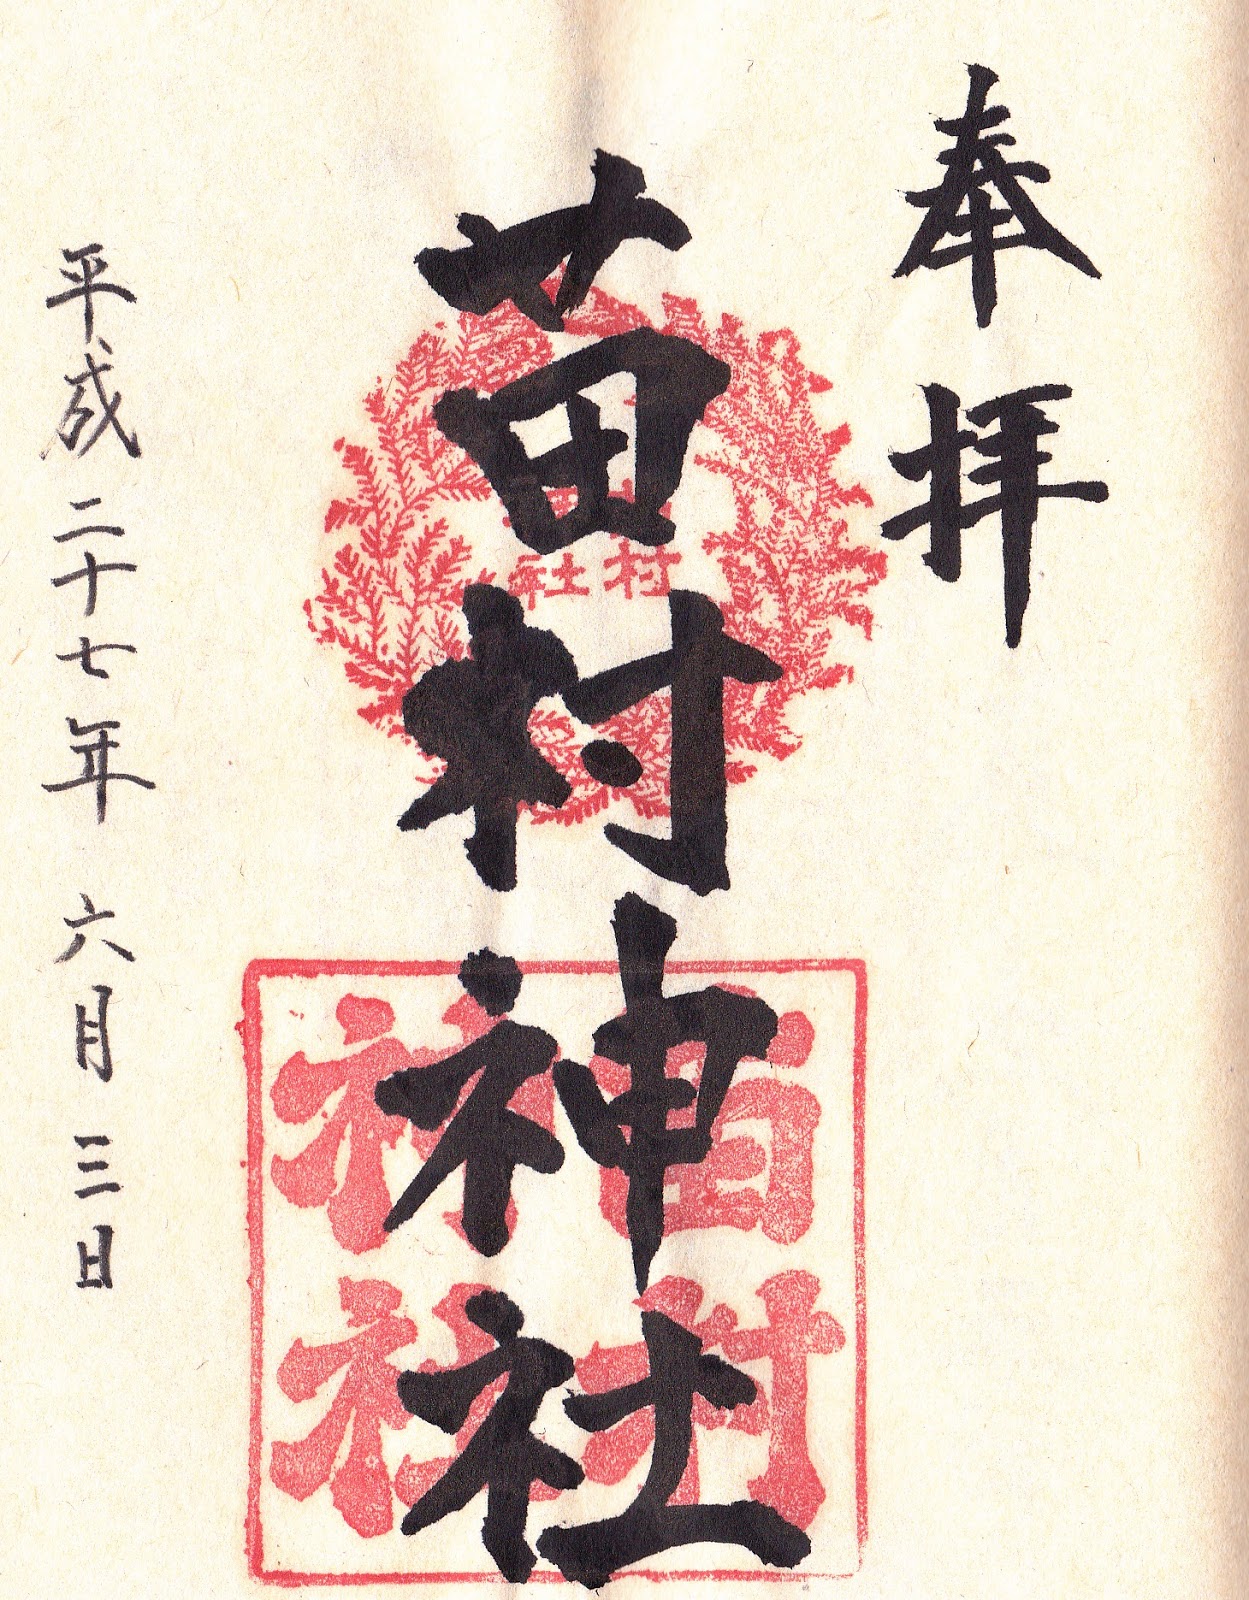 奉拝
苗村神社
平成二十七年六月三日
村
社
苗村
神社